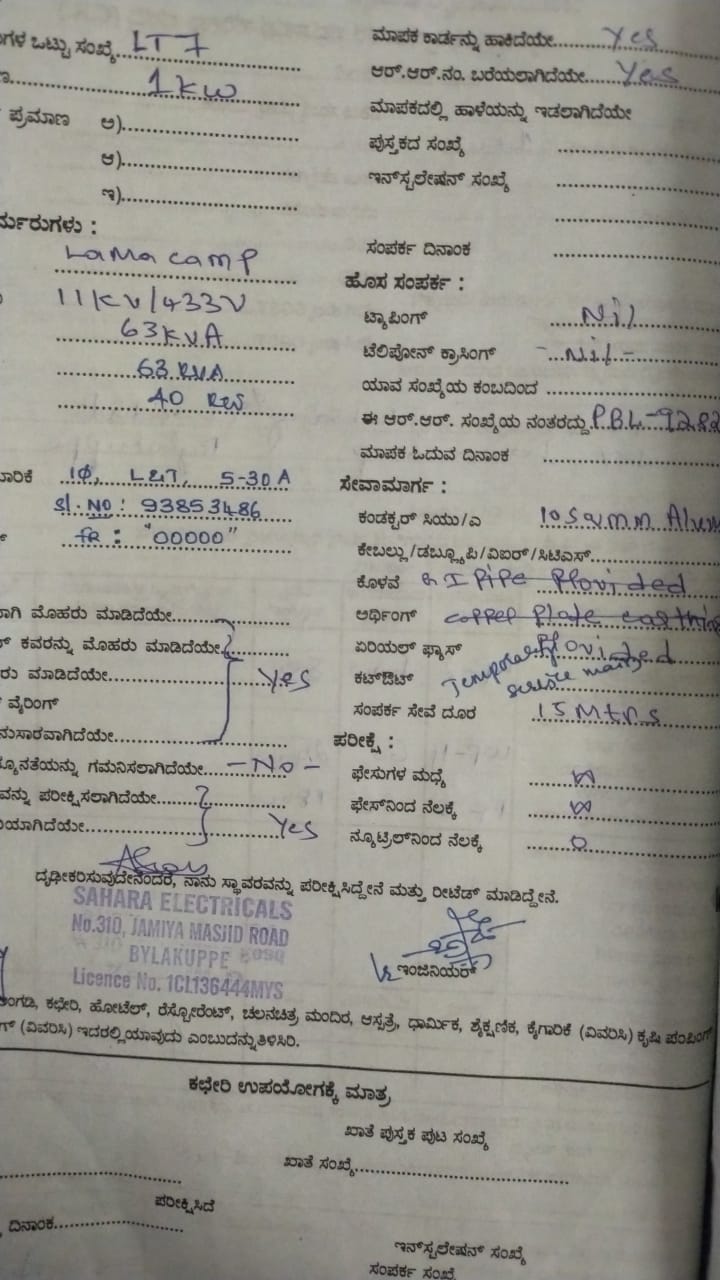 ಗಳ ಒಟ್ಟು ಸಂಖ್ಯೆ LT 7
1 KW
ಪ್ರಮಾಣ ಅ)
ಆ)
ಇ)
ರ್ಮರುಗಳು :
Lama camp
11KV/433V
63KVA
63 KVA
40 KW
ಮಾಪಕ ಕಾರ್ಡನ್ನು ಹಾಕಿದೆಯೇ Yes
ಆರ್.ಆರ್.ನಂ. ಬರೆಯಲಾಗಿದೆಯೇ Yes
ಮಾಪಕದಲ್ಲಿ ಹಾಳೆಯನ್ನು ಇಡಲಾಗಿದೆಯೇ
ಪುಸ್ತಕದ ಸಂಖ್ಯೆ
ಇನ್‌ಸ್ಟಲೇಷನ್ ಸಂಖ್ಯೆ
ಸಂಪರ್ಕ ದಿನಾಂಕ
ಹೊಸ ಸಂಪರ್ಕ :
ಟ್ಯಾಪಿಂಗ್ Nil
ಟೆಲಿಪೋನ್ ಕ್ರಾಸಿಂಗ್ -Nil-
ಯಾವ ಸಂಖ್ಯೆಯ ಕಂಬದಿಂದ
ಈ ಆರ್.ಆರ್. ಸಂಖ್ಯೆಯ ನಂತರದ್ದು P.B.L-9282
ಮಾಪಕ ಓದುವ ದಿನಾಂಕ
ವಾರಿಕೆ 1Φ, L&T, 5-30A
Sl. No: 93853486
fR: "00000"
ಸೇವಾಮಾರ್ಗ :
ಕಂಡಕ್ಟರ್ ಸಿಯು/ಎ 10sqmm Alum
ಕೇಬಲ್ಲು/ಡಬ್ಲ್ಯೂಪಿ/ವಿಐರ್/ಸಿಟಿಎಸ್
ಕೊಳವೆ G I Pipe Provided
ಅರ್ಥಿಂಗ್ copper plate earthing
ಏರಿಯಲ್ ಫ್ಯಾಸ್ Provided
ಕಟ್‌ಔಟ್ Temporary service mains
ಸಂಪರ್ಕ ಸೇವೆ ದೂರ 15 Mtrs
ವಾಗಿ ಮೊಹರು ಮಾಡಿದೆಯೇ
ಕವರನ್ನು ಮೊಹರು ಮಾಡಿದೆಯೇ
ರು ಮಾಡಿದೆಯೇ Yes
ವೈರಿಂಗ್
ನುಸಾರವಾಗಿದೆಯೇ
ನ್ಯೂನತೆಯನ್ನು ಗಮನಿಸಲಾಗಿದೆಯೇ -No-
ವನ್ನು ಪರೀಕ್ಷಿಸಲಾಗಿದೆಯೇ
ಯಾಗಿದೆಯೇ Yes
ಪರೀಕ್ಷೆ :
ಫೇಸುಗಳ ಮಧ್ಯೆ
ಫೇಸ್‌ನಿಂದ ನೆಲಕ್ಕೆ
ನ್ಯೂಟ್ರಿಲ್‌ನಿಂದ ನೆಲಕ್ಕೆ 0
ದೃಢೀಕರಿಸುವುದೇನೆಂದರೆ, ನಾನು ಸ್ಥಾವರವನ್ನು ಪರೀಕ್ಷಿಸಿದ್ದೇನೆ ಮತ್ತು ರೀಟೆಡ್ ಮಾಡಿದ್ದೇನೆ.
SAHARA ELECTRICALS
No.310, JAMIYA MASJID ROAD
BYLAKUPPE
Licence No. 1CL136444MYS
ಇಂಜಿನಿಯರ್
ಅಂಗಡಿ, ಕಛೇರಿ, ಹೋಟೆಲ್, ರೆಸ್ಟೋರೆಂಟ್, ಚಲನಚಿತ್ರ ಮಂದಿರ, ಆಸ್ಪತ್ರೆ, ಧಾರ್ಮಿಕ, ಶೈಕ್ಷಣಿಕ, ಕೈಗಾರಿಕೆ (ವಿವರಿಸಿ) ಕೃಷಿ ಪಂಪಿಂಗ್
ಗ್ (ವಿವರಿಸಿ) ಇದರಲ್ಲಿಯಾವುದು ಎಂಬುದನ್ನು ತಿಳಿಸಿರಿ.
ಕಛೇರಿ ಉಪಯೋಗಕ್ಕೆ ಮಾತ್ರ
ಖಾತೆ ಪುಸ್ತಕ ಪುಟ ಸಂಖ್ಯೆ
ಖಾತೆ ಸಂಖ್ಯೆ
ಪರೀಕ್ಷಿಸಿದೆ
ದಿನಾಂಕ
ಇನ್‌ಸ್ಟಲೇಷನ್ ಸಂಖ್ಯೆ
ಸಂಪರ್ಕ ಸಂಖ್ಯೆ